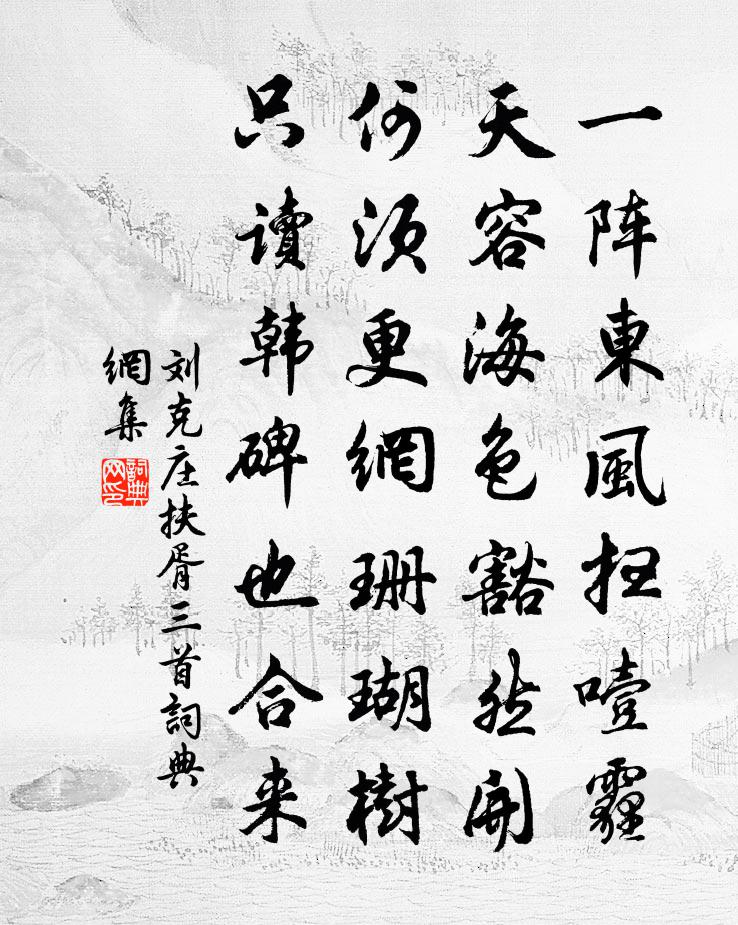 一阵東風扫噎霾
天容海色豁然開
何须更網珊瑚樹
只读韩碑也合来
刘克庄扶胥三首詞典
網集
詞典
网印